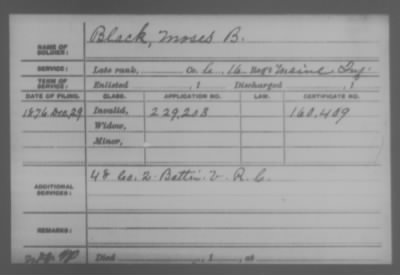 NAME OF SOLDIER: Black, Moses B.
SERVICE: Late rank, Co. 16 Reg't Maine Inf.
TERM OF SERVICE: Enlisted , 1 Discharged , 1
DATE OF FILING. CLASS. APPLICATION NO. LAW. CERTIFICATE NO.
1876 Dec. 29 Invalid, 229,208 160,409
Widow,
Minor,
ADDITIONAL SERVICES: 48 Co. 2 Battn. V. R. C.
REMARKS:
Died , 1 , at